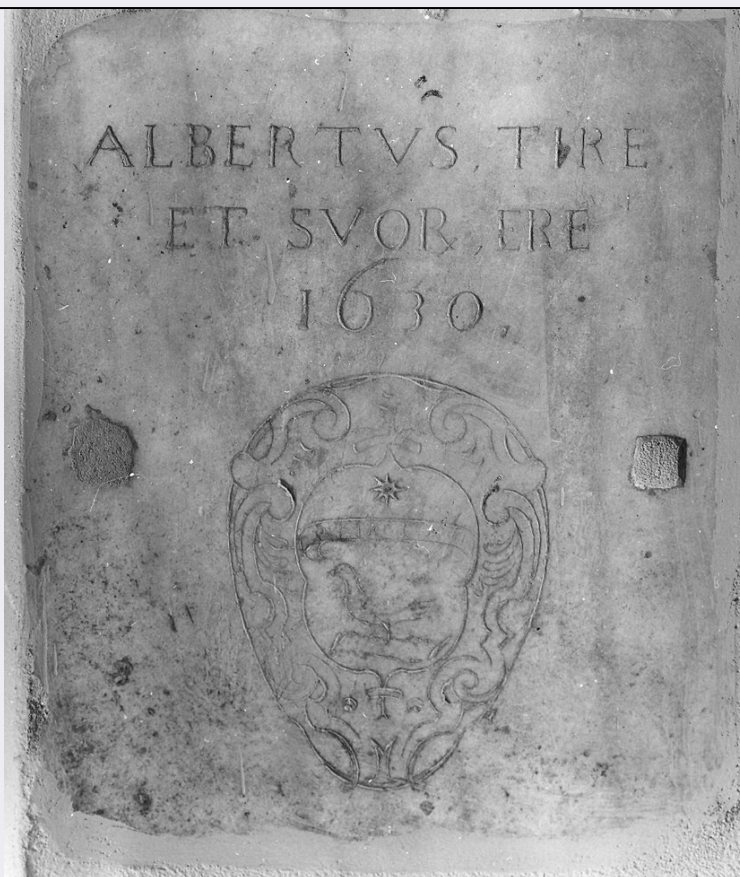 ALBERTVS, TIRE
ET SVOR, ERE.
1630,
T
M